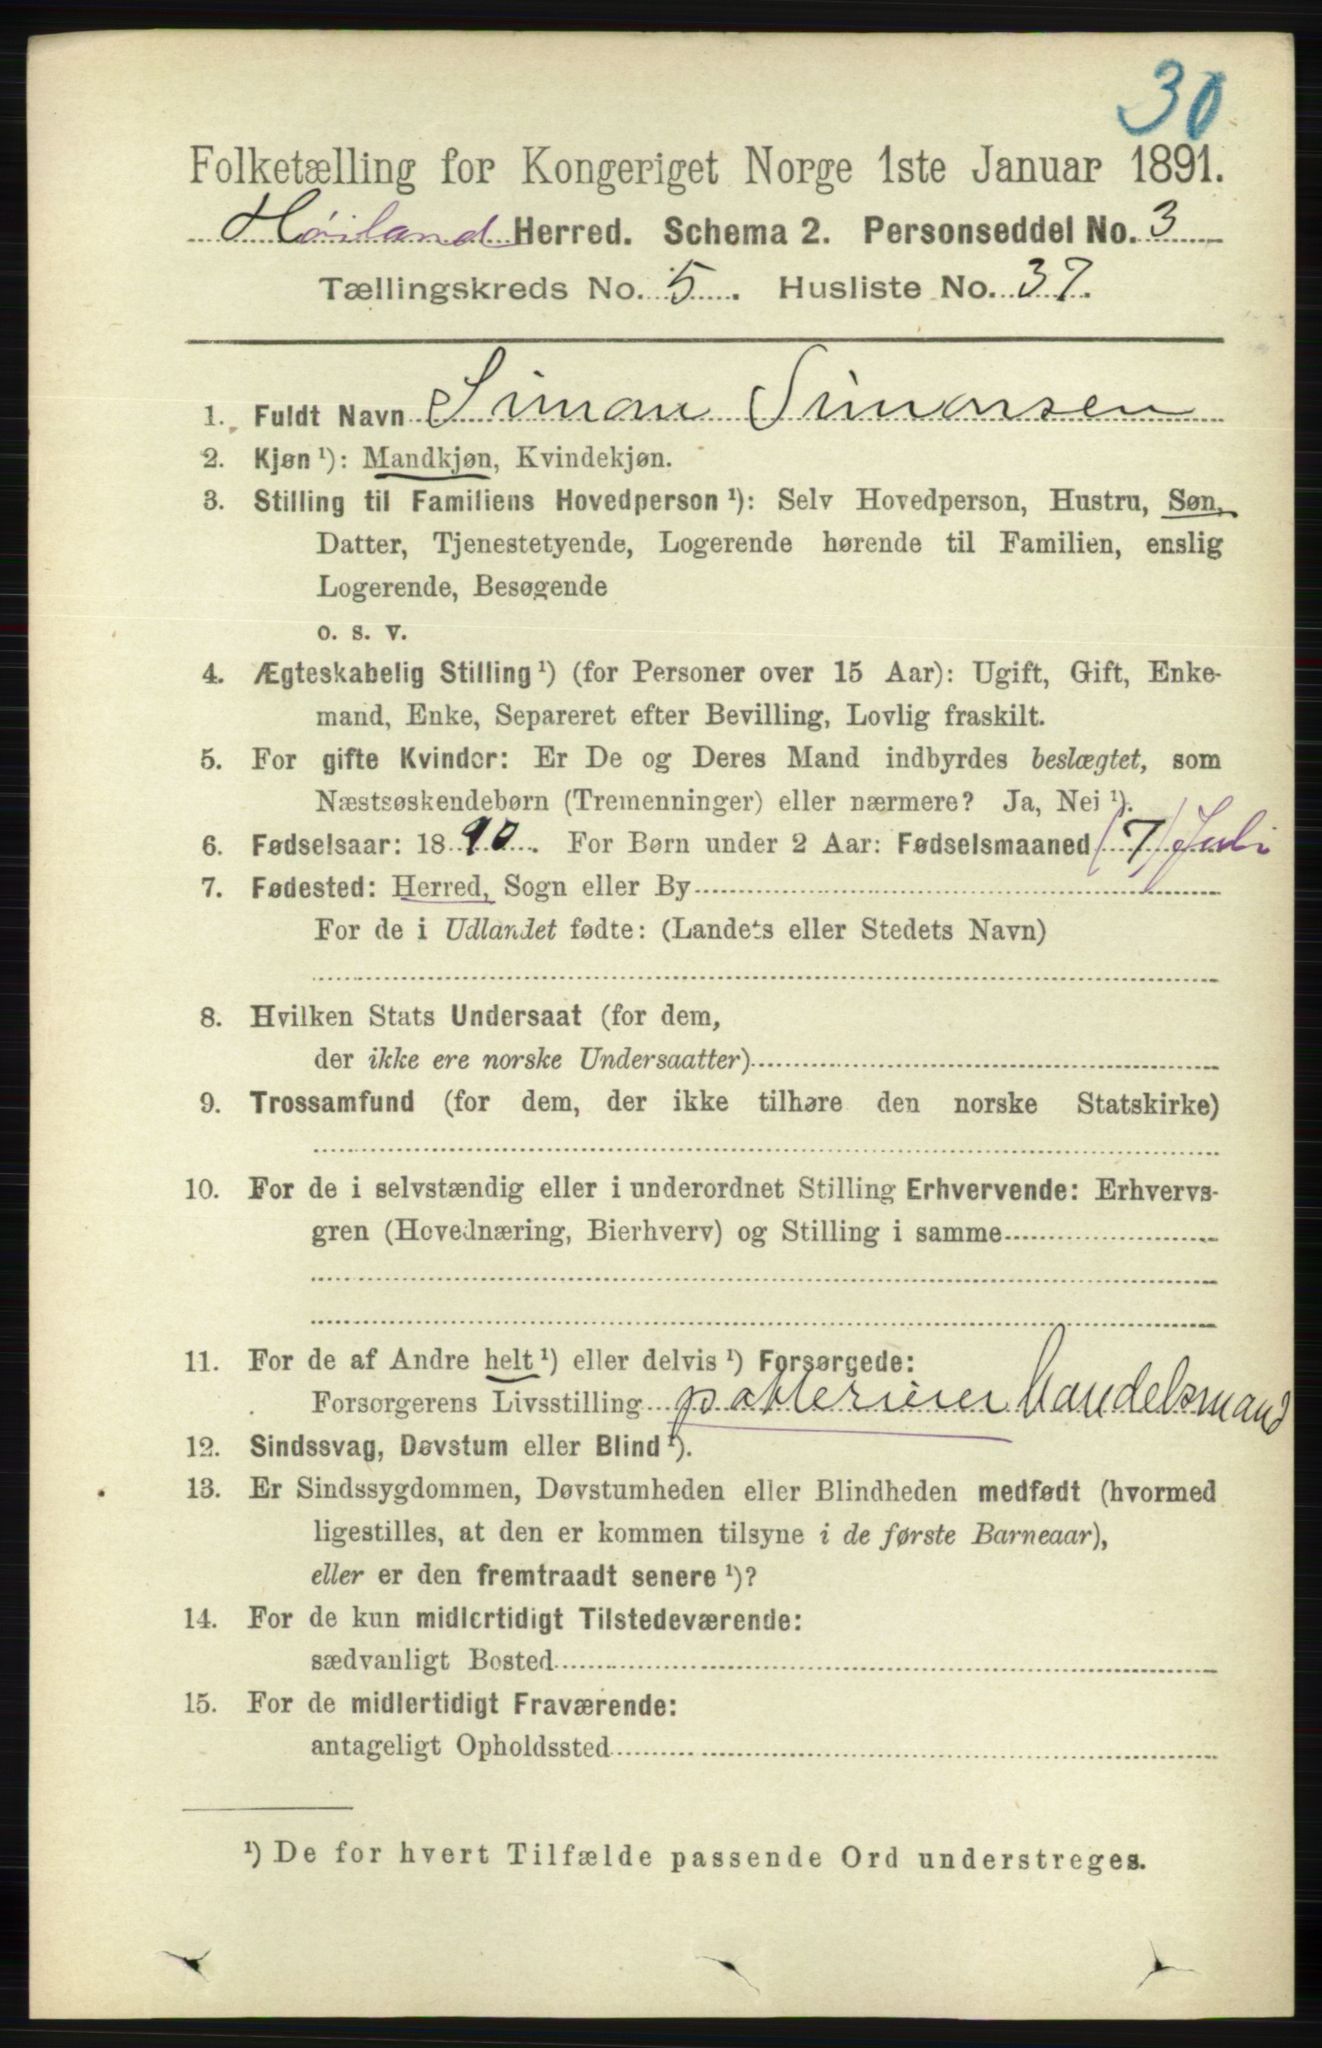 30
Folketælling for Kongeriget Norge 1ste Januar 1891.
Høiland Herred. Schema 2. Personseddel No. 3
Tællingskreds No. 5. Husliste No. 37.
1. Fuldt Navn Simon Simonsen
2. Kjøn ¹): Mandkjøn, Kvindekjøn.
3. Stilling til Familiens Hovedperson ¹): Selv Hovedperson, Hustru, Søn,
Datter, Tjenestetyende, Logerende hørende til Familien, enslig
Logerende, Besøgende
o. s. v.
4. Ægteskabelig Stilling ¹) (for Personer over 15 Aar): Ugift, Gift, Enke-
mand, Enke, Separeret efter Bevilling, Lovlig fraskilt.
5. For gifte Kvinder: Er De og Deres Mand indbyrdes beslægtet, som
Næstsøskendebørn (Tremenninger) eller nærmere? Ja, Nei ¹).
6. Fødselsaar: 1890. For Børn under 2 Aar: Fødselsmaaned (7) Juli
7. Fødested: Herred, Sogn eller By
For de i Udlandet fødte: (Landets eller Stedets Navn)
8. Hvilken Stats Undersaat (for dem,
der ikke ere norske Undersaatter)
9. Trossamfund (for dem, der ikke tilhøre den norske Statskirke)
10. For de i selvstændig eller i underordnet Stilling Erhvervende: Erhvervs-
gren (Hovednæring, Bierhverv) og Stilling i samme
11. For de af Andre helt ¹) eller delvis ¹) Forsørgede:
Forsorgerens Livsstilling handelsmand
12. Sindssvag, Døvstum eller Blind ¹).
13. Er Sindssygdommen, Døvstumheden eller Blindheden medfødt (hvormed
ligestilles, at den er kommen tilsyne i de første Barneaar),
eller er den fremtraadt senere ¹)?
14. For de kun midlertidigt Tilstedeværende:
sædvanligt Bosted
15. For de midlertidigt Fraværende:
antageligt Opholdssted
¹) De for hvert Tilfælde passende Ord understreges.